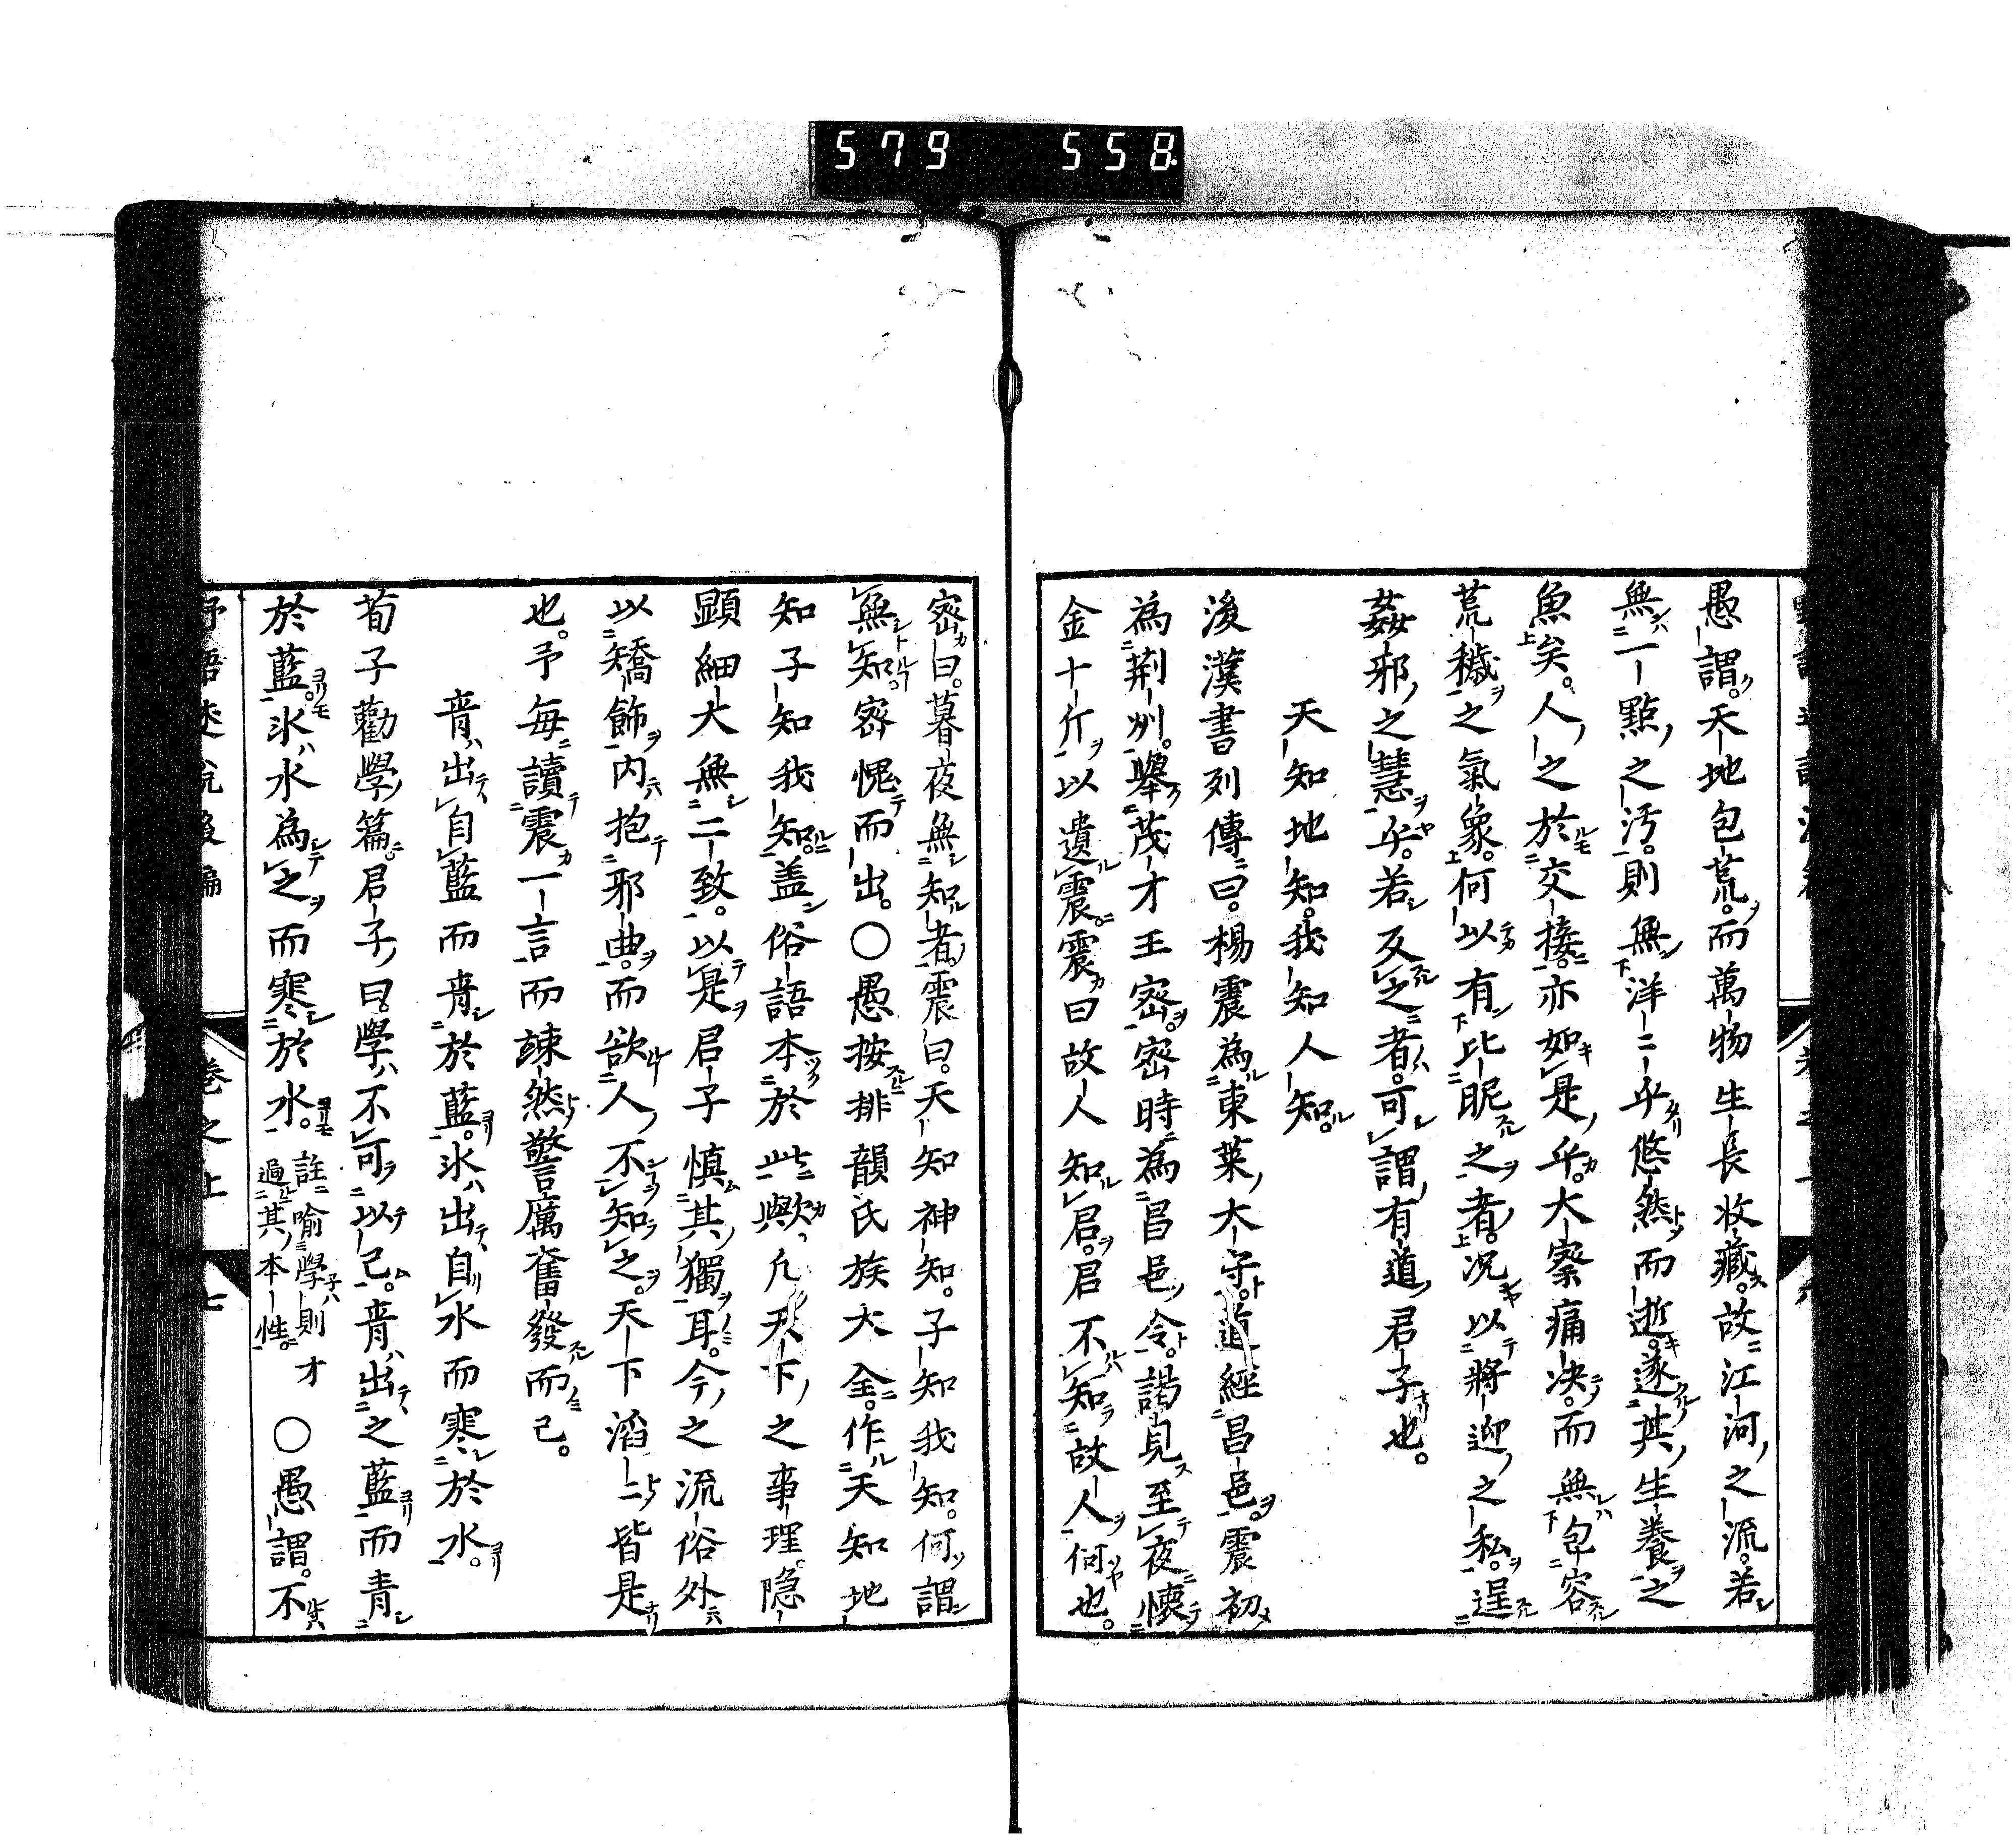 579 558
愚謂。天地包荒。而萬物生長收藏。故江河之流。若
無一點之汚。則無洋二乎悠然而逝。遂其生養之
魚矣。人之於交接。亦如是乎。大察痛决。而無包容
荒穢之氣象。何以有比昵之者。况以將迎之私。逞
姦邪之慧乎。若反之者。可謂有道君子也。
天知地知。我知人知。
後漢書列傳曰。楊震為東萊太守。道經昌邑。震初
為荆州。擧茂才王密。密時為昌邑令。謁見至夜懷
金十斤以遺震。震曰故人知君。君不知故人何也。
密曰。暮夜無知者。震曰。天知神知。子知我知。何謂
無知。密愧而出。〇愚按排韻氏族大全。作天知地
知子知我知。盖俗語本於此歟。凡天下之事理。隐
顕細大無二致。以是君子慎其獨耳。今之流俗外
以矯飾内抱邪曲。而欲人不知之。天下滔二皆是
也。予毎讀震一言而竦然警厲奮發而已。
青出自藍而青於藍。氷出自水而寒於水。
荀子勸學篇。君子曰。學不可以已。青出之藍而青
於藍。氷水為之而寒於水。
註喻學則才
過其本性。
〇愚謂。不
卷之上
七